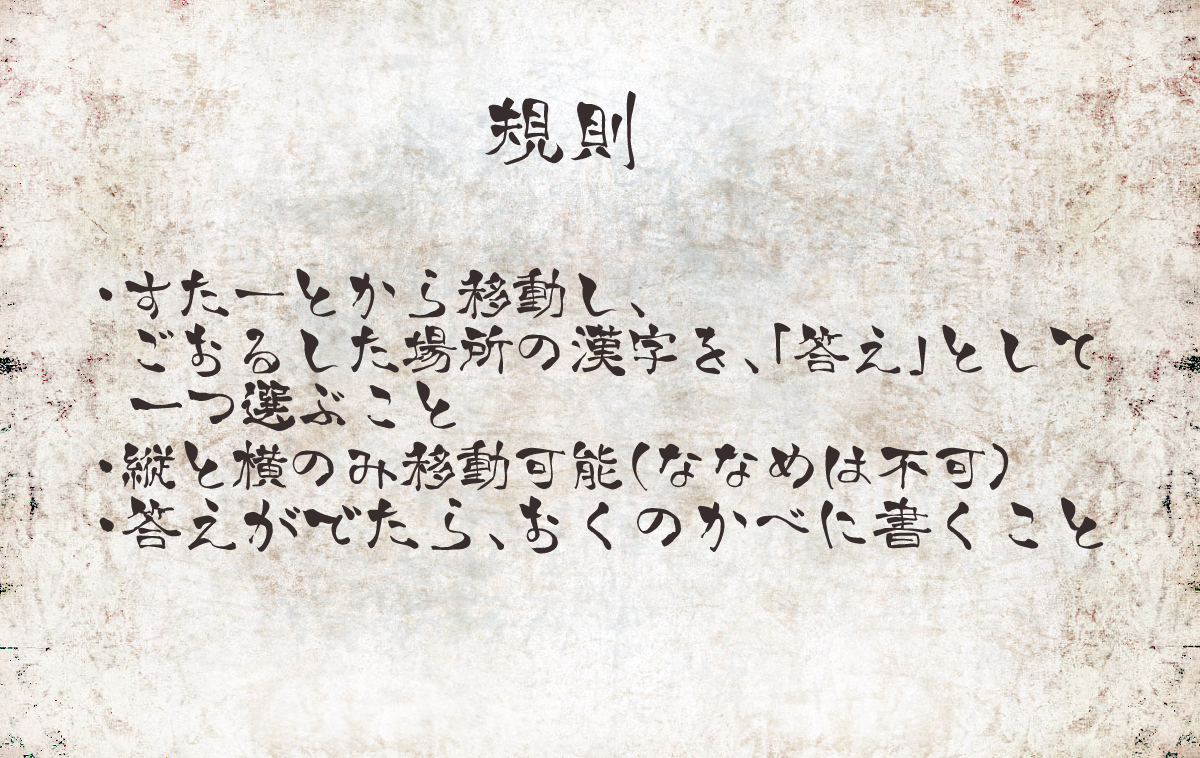 規則
・すたーとから移動し、
ごおるした場所の漢字を、「答え」として
一つ選ぶこと
・縦と横のみ移動可能(ななめは不可)
・答えがでたら、おくのかべに書くこと